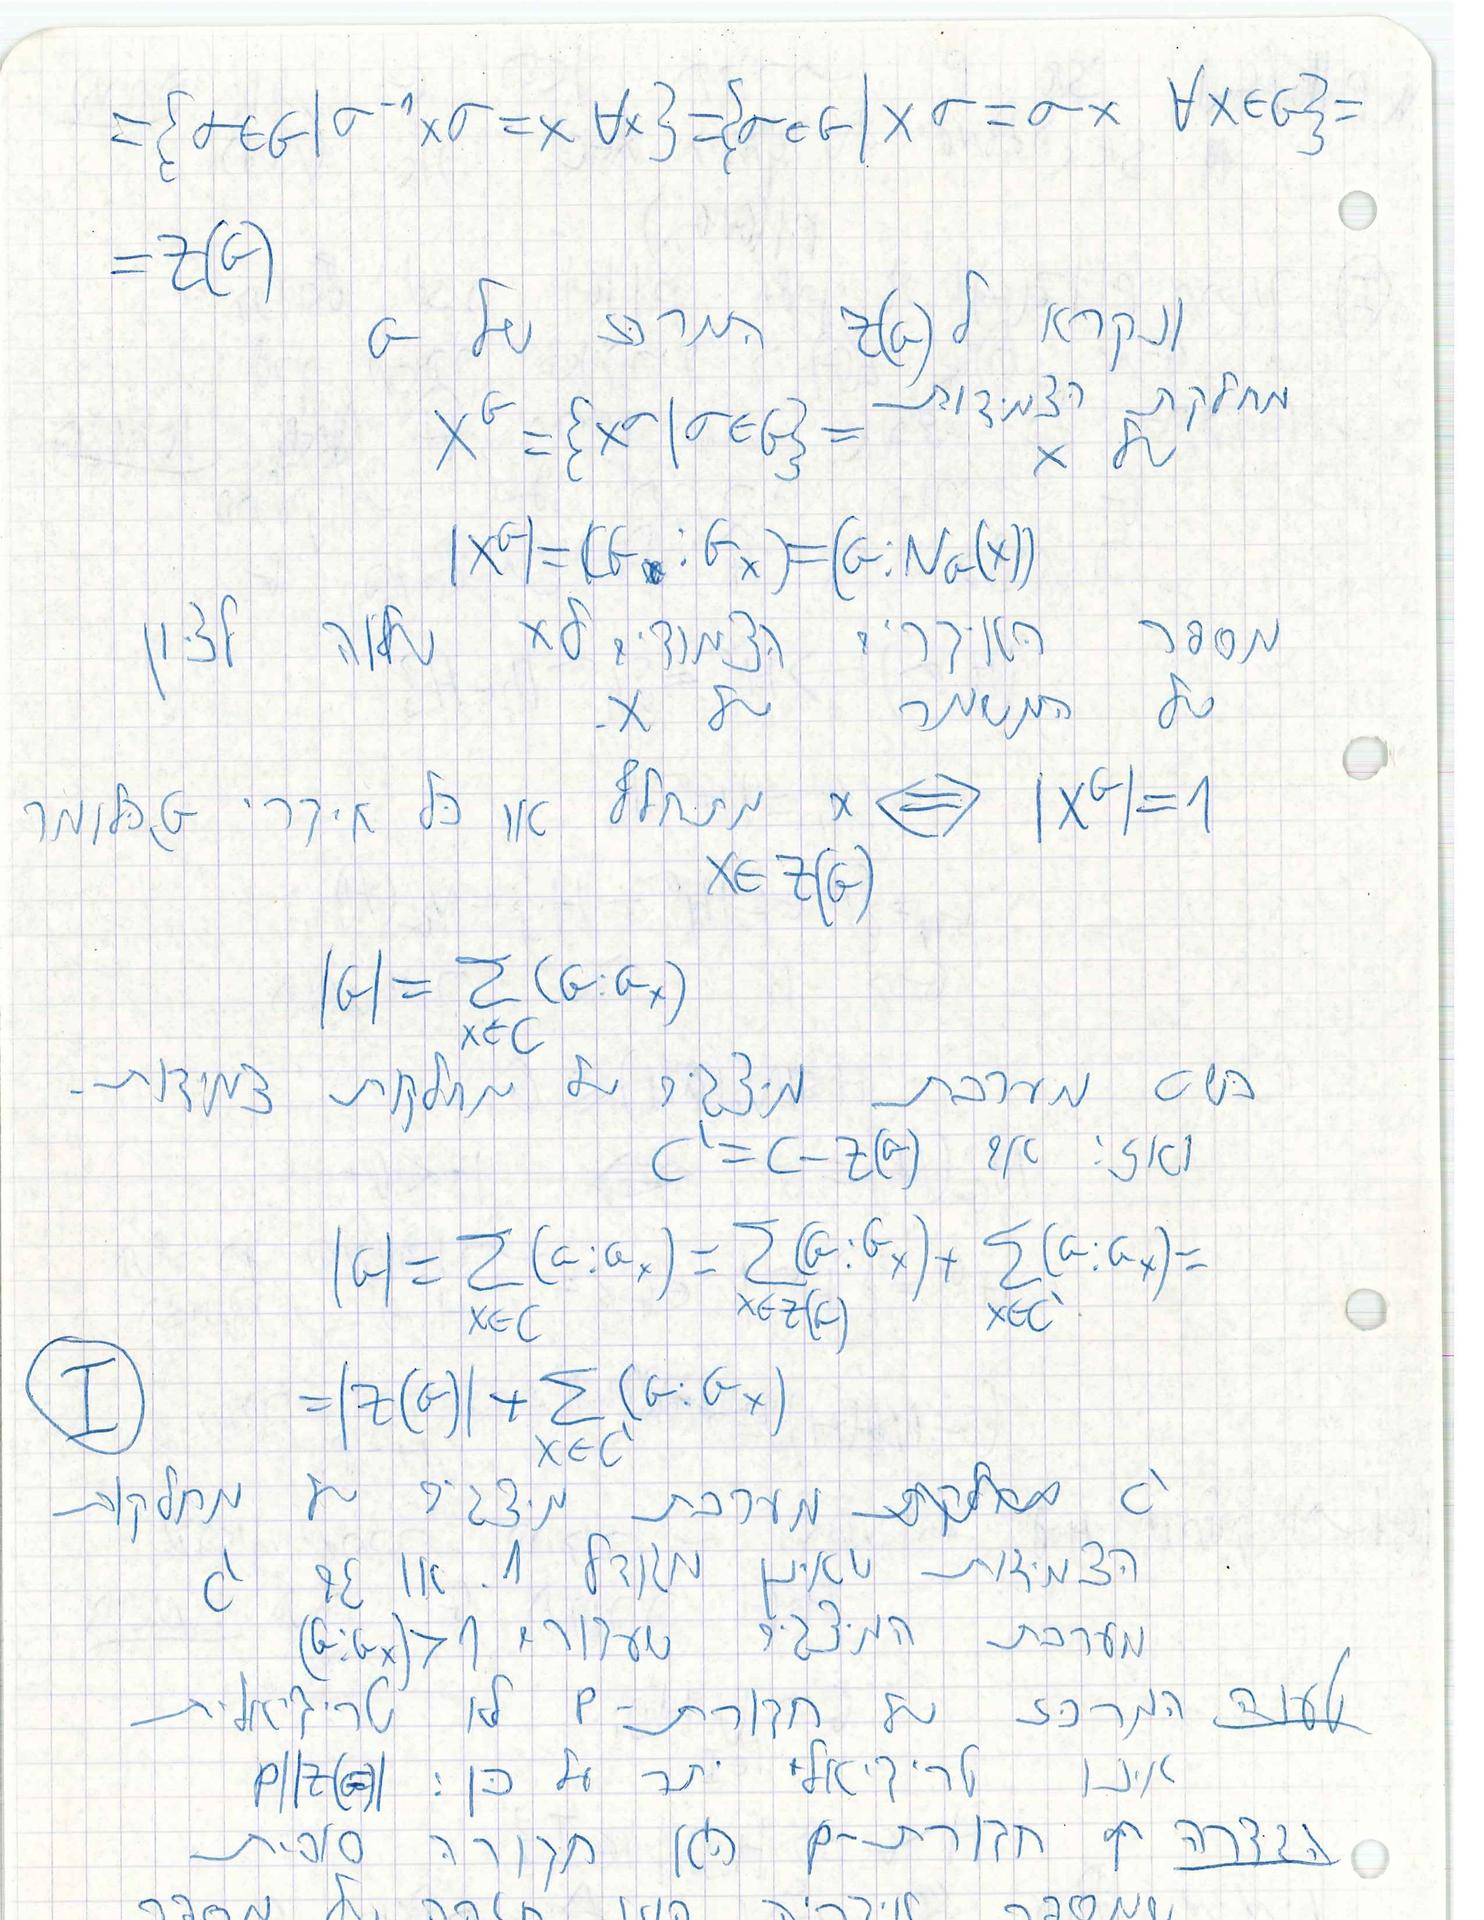 ={σ∈G|σ⁻¹xσ=x ∀x}={σ∈G|xσ=σx ∀x∈G}=
=Z(G)
ונקרא ל Z(G) המרכז של G
x^G={x^σ|σ∈G}= מחלקת הצמידות
של x
|x^G|=(G:G_x)=(G:N_G(x))
מספר האיברים הצמודים לx שווה לציון
של המשמר של x.
|x^G|=1 ⟺ x מתחלף עם כל איברי G כלומר
x∈Z(G)
|G|=∑_{x∈C}(G:G_x)
מערכת מיצגים של מחלקות צמידות.
ואז: אם C'=C-Z(G)
|G|=∑_{x∈C}(G:G_x)=∑_{x∈Z(G)}(G:G_x)+∑_{x∈C'}(G:G_x)=
I =|Z(G)|+∑_{x∈C'}(G:G_x)
C' מערכת מיצגים של מחלקות
הצמידות שאינן מגודל 1. או גם C'
מערכת המיצגים שעבורם (G:G_x)>1
טענה המרכז של חבורת-p לא טריויאלית
אינו טריויאלי יתר על כן: p||Z(G)|
הגדרה חבורת-p היא חבורה סופית
שמספר איבריה הוא חזקה של מספר